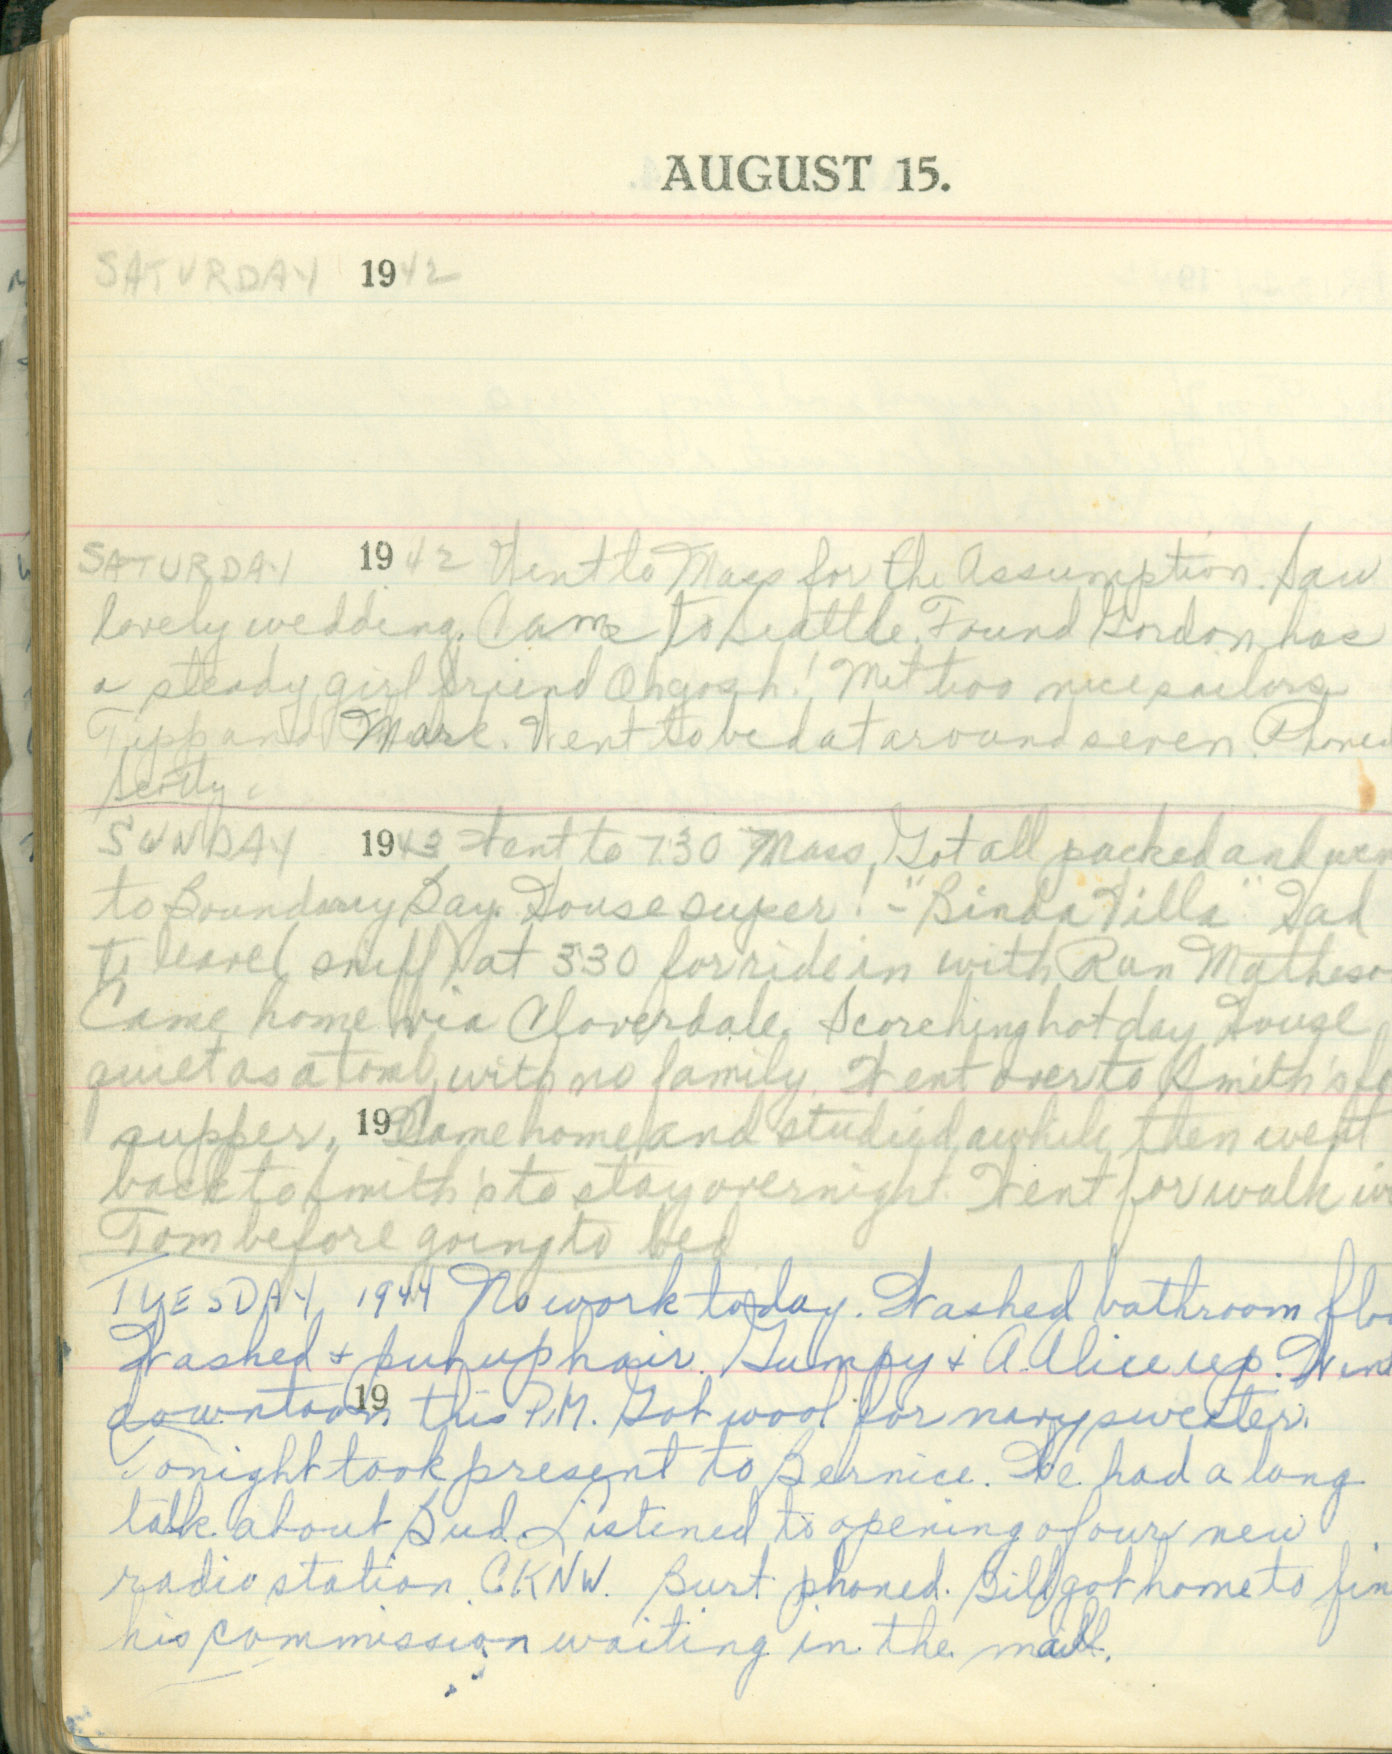 AUGUST 15.
SATURDAY 1942
SATURDAY 1942 Went to Mass for the Assumption. Saw
lovely wedding. Came to Seattle. Found Gordon has
a steady girl friend Oh gosh! Met two nice sailors
Tipp and Mark. Went to bed at around seven. Phoned
SUNDAY 1943 Went to 730 Mass, Got all packed and wen
to Boundary Bay. House super! - "Binda Villa" Had
to leave (sniff) at 330 for ride in with Ran Matheso
Came home via Cloverdale. Scorching hot day House
quiet as a tomb with no family. Went over to Smith's fo
supper. 19 Came home and studied awhile, then went
back to Smith's to stay overnight. Went for walk wi
Tom before going to bed
TUESDAY, 1944 No work today. Washed bathroom floo
Washed + put up hair. Gumpy + A. Alice up. Went
19
downtown this P.M. Got wool for navy sweater.
Tonight took present to Bernice. We had a long
talk about Bud. Listened to opening of our new
radio station CKNW. Burt phoned. Bill got home to fin
his commission waiting in the mail.